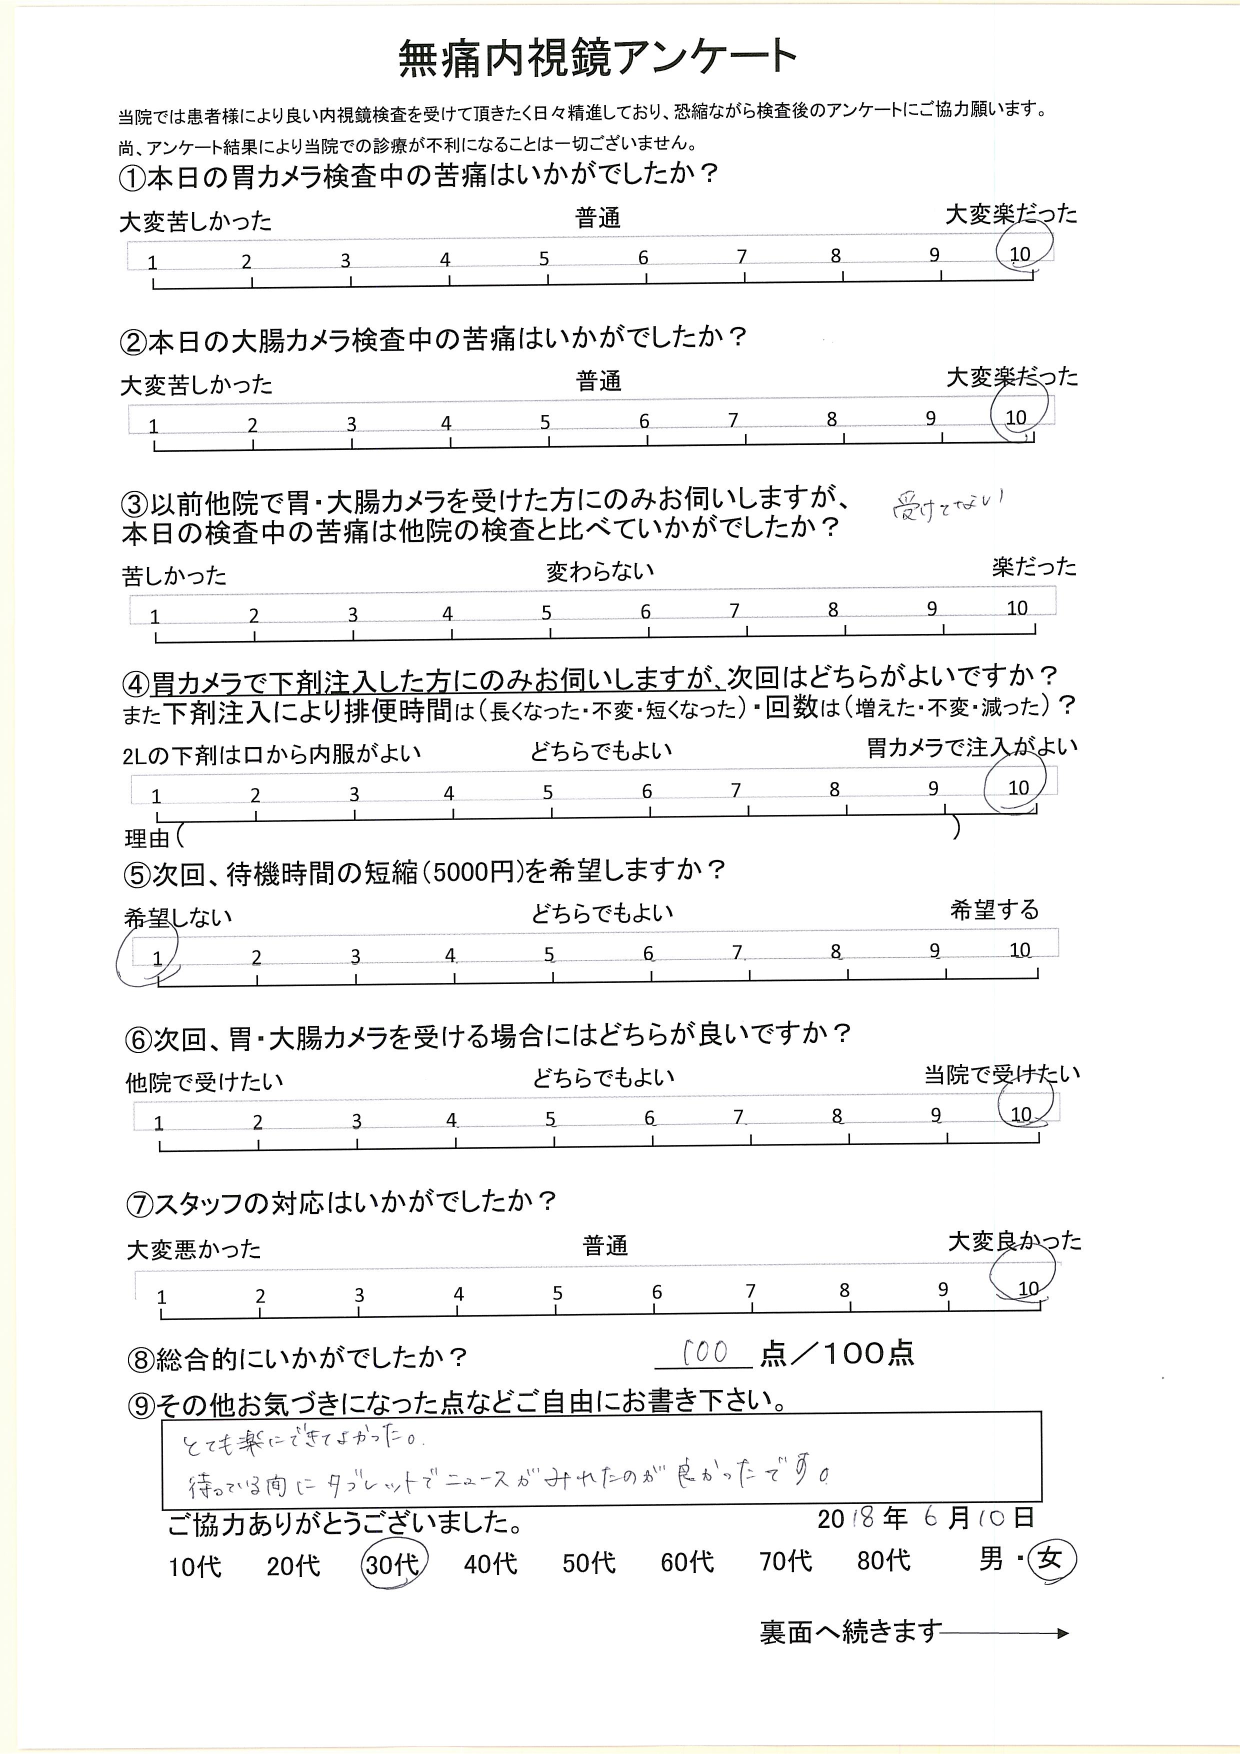 無痛内視鏡アンケート
当院では患者様により良い内視鏡検査を受けて頂きたく日々精進しており、恐縮ながら検査後のアンケートにご協力願います。
尚、アンケート結果により当院での診療が不利になることは一切ございません。
①本日の胃カメラ検査中の苦痛はいかがでしたか？
大変苦しかった 普通 大変楽だった
1 2 3 4 5 6 7 8 9 10
②本日の大腸カメラ検査中の苦痛はいかがでしたか？
大変苦しかった 普通 大変楽だった
1 2 3 4 5 6 7 8 9 10
③以前他院で胃・大腸カメラを受けた方にのみお伺いしますが、 受けてない
本日の検査中の苦痛は他院の検査と比べていかがでしたか？
苦しかった 変わらない 楽だった
1 2 3 4 5 6 7 8 9 10
④胃カメラで下剤注入した方にのみお伺いしますが、次回はどちらがよいですか？
また下剤注入により排便時間は（長くなった・不変・短くなった）・回数は（増えた・不変・減った）？
2Lの下剤は口から内服がよい どちらでもよい 胃カメラで注入がよい
1 2 3 4 5 6 7 8 9 10
理由（ ）
⑤次回、待機時間の短縮（5000円）を希望しますか？
希望しない どちらでもよい 希望する
1 2 3 4 5 6 7 8 9 10
⑥次回、胃・大腸カメラを受ける場合にはどちらが良いですか？
他院で受けたい どちらでもよい 当院で受けたい
1 2 3 4 5 6 7 8 9 10
⑦スタッフの対応はいかがでしたか？
大変悪かった 普通 大変良かった
1 2 3 4 5 6 7 8 9 10
⑧総合的にいかがでしたか？ 100 点／100点
⑨その他お気づきになった点などご自由にお書き下さい。
とても楽にできてよかった。
待っている間にタブレットでニュースがみれたのが良かったです。
ご協力ありがとうございました。 2018年 6月10日
10代 20代 30代 40代 50代 60代 70代 80代 男・女
裏面へ続きます